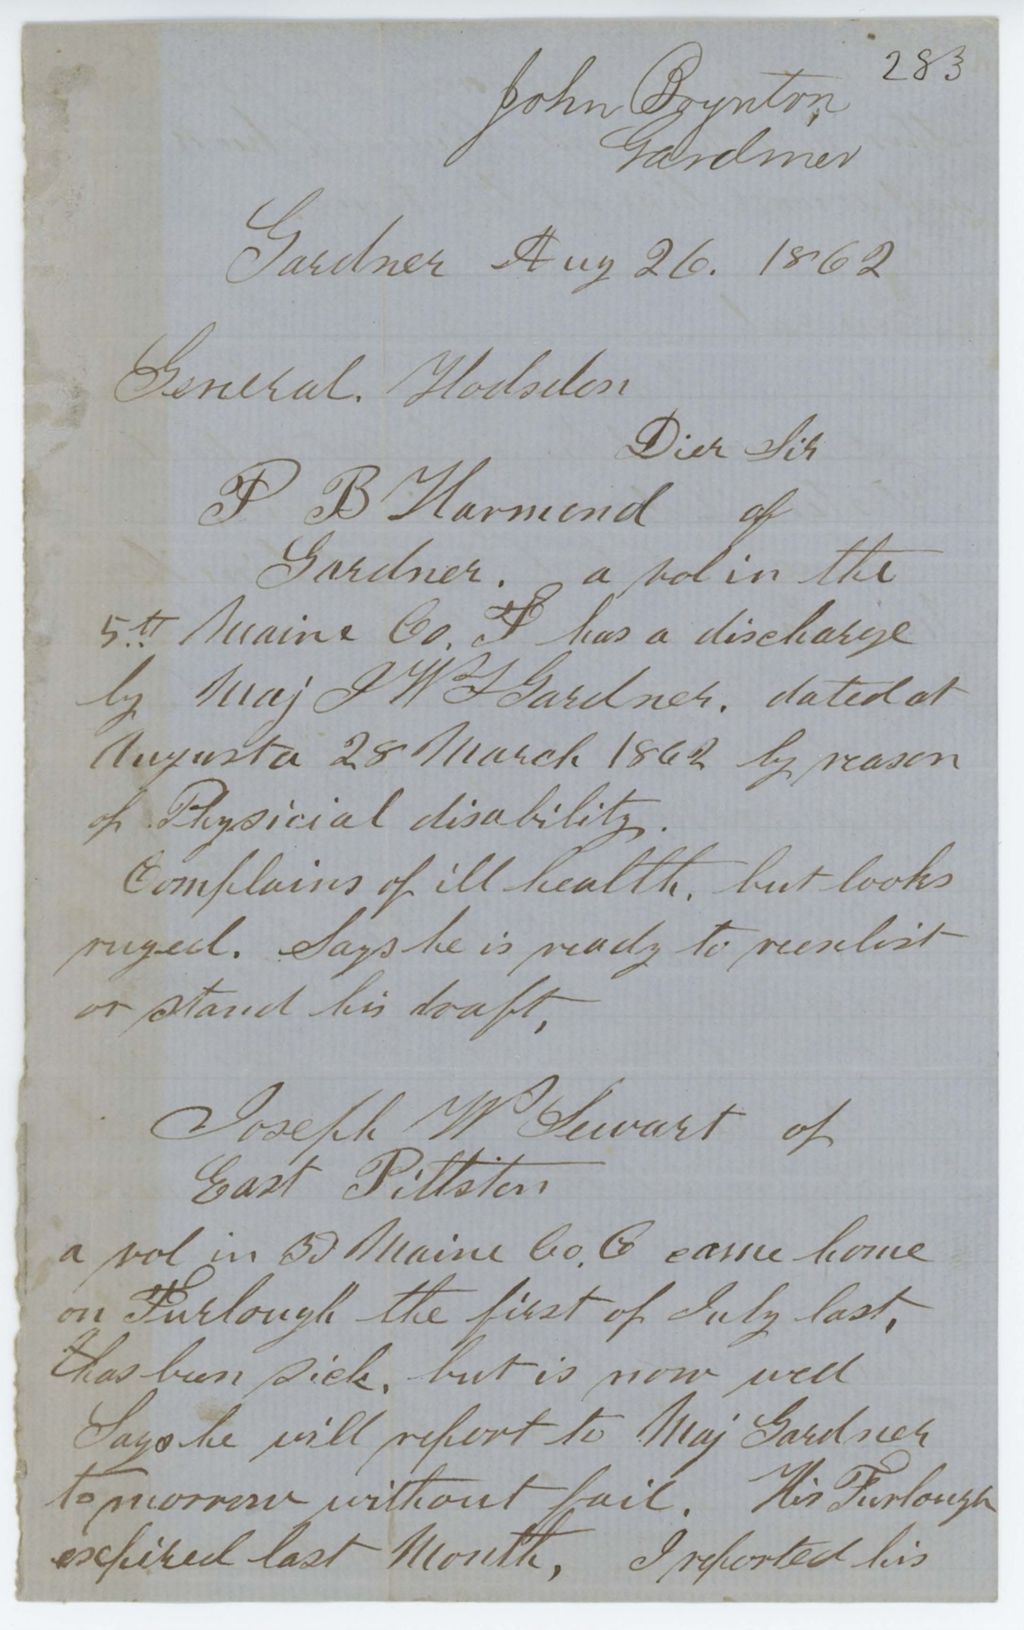 283
John Boynton,
Gardiner
Gardner Aug 26. 1862
General. Hodsdon
Dier Sir
P B Harmond of
Gardner. a vol in the
5th Maine Co. F has a discharge
by Maj J W T Gardner. dated at
Augusta 28 March 1862 by reason
of Physicial disability.
Complains of ill health, but looks
ruged. Says he is ready to reenlist
or stand his draft,
Joseph W Sewart of
East Pittston
a vol in 3d Maine Co. C came home
on Furlough the first of July last,
has been sick, but is now well
Says he will report to Maj Gardner
tomorrow without fail. His Furlough
expired last Month, I reported his